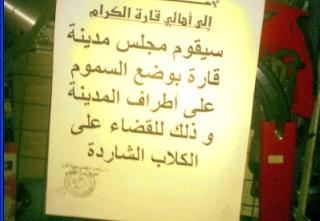 إلى أهالي قارة الكرام
سيقوم مجلس مدينة
قارة بوضع السموم
على أطراف المدينة
و ذلك للقضاء على
الكلاب الشاردة